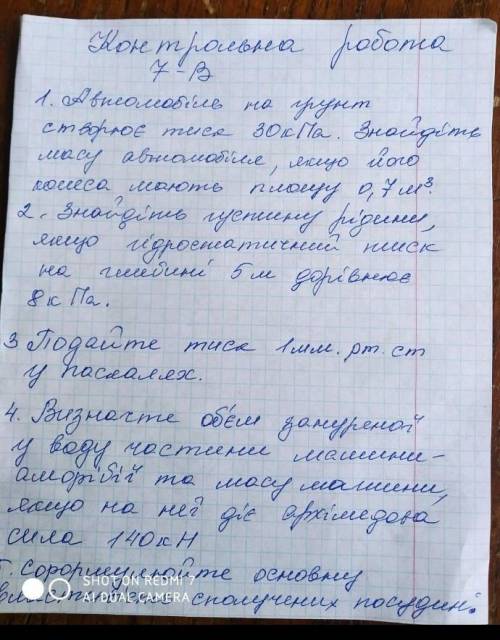 Контрольна робота
7-В
1. Автомобіль на грунт
створює тиск 30кПа. Знайдіть
масу автомобіля, якщо його
колеса мають площу 0,7м³.
2. Знайдіть густину рідини,
якщо гідростатичний тиск
на глибині 5м дорівнює
8кПа.
3 Подайте тиск 1мм. рт. ст
у паскалях.
4. Визначте об'єм зануреної
у воду частини машини-
амфібії та масу машини,
якщо на неї діє архімедова
сила 140кН
5. Сформулюйте основну
сполучених посудин.
SHOT ON REDMI 7
AI DUAL CAMERA